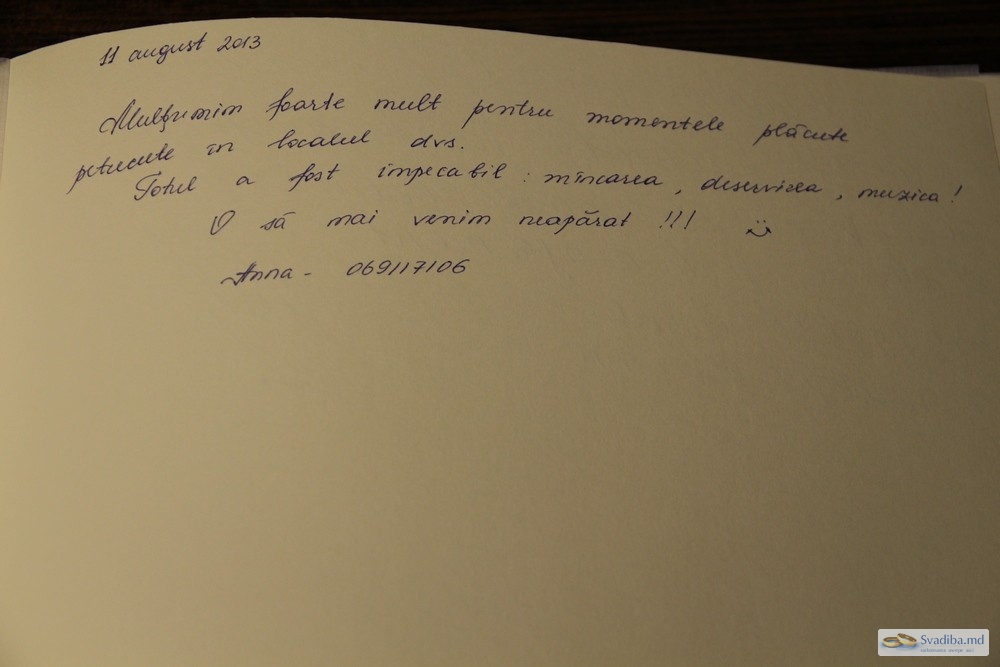 11 august 2013
Mulțumim foarte mult pentru momentele plăcute
petrecute în localul dvs.
Totul a fost impecabil : mîncarea, deservirea, muzica!
O să mai venim neapărat !!!
Anna - 069117106
Svadiba.md